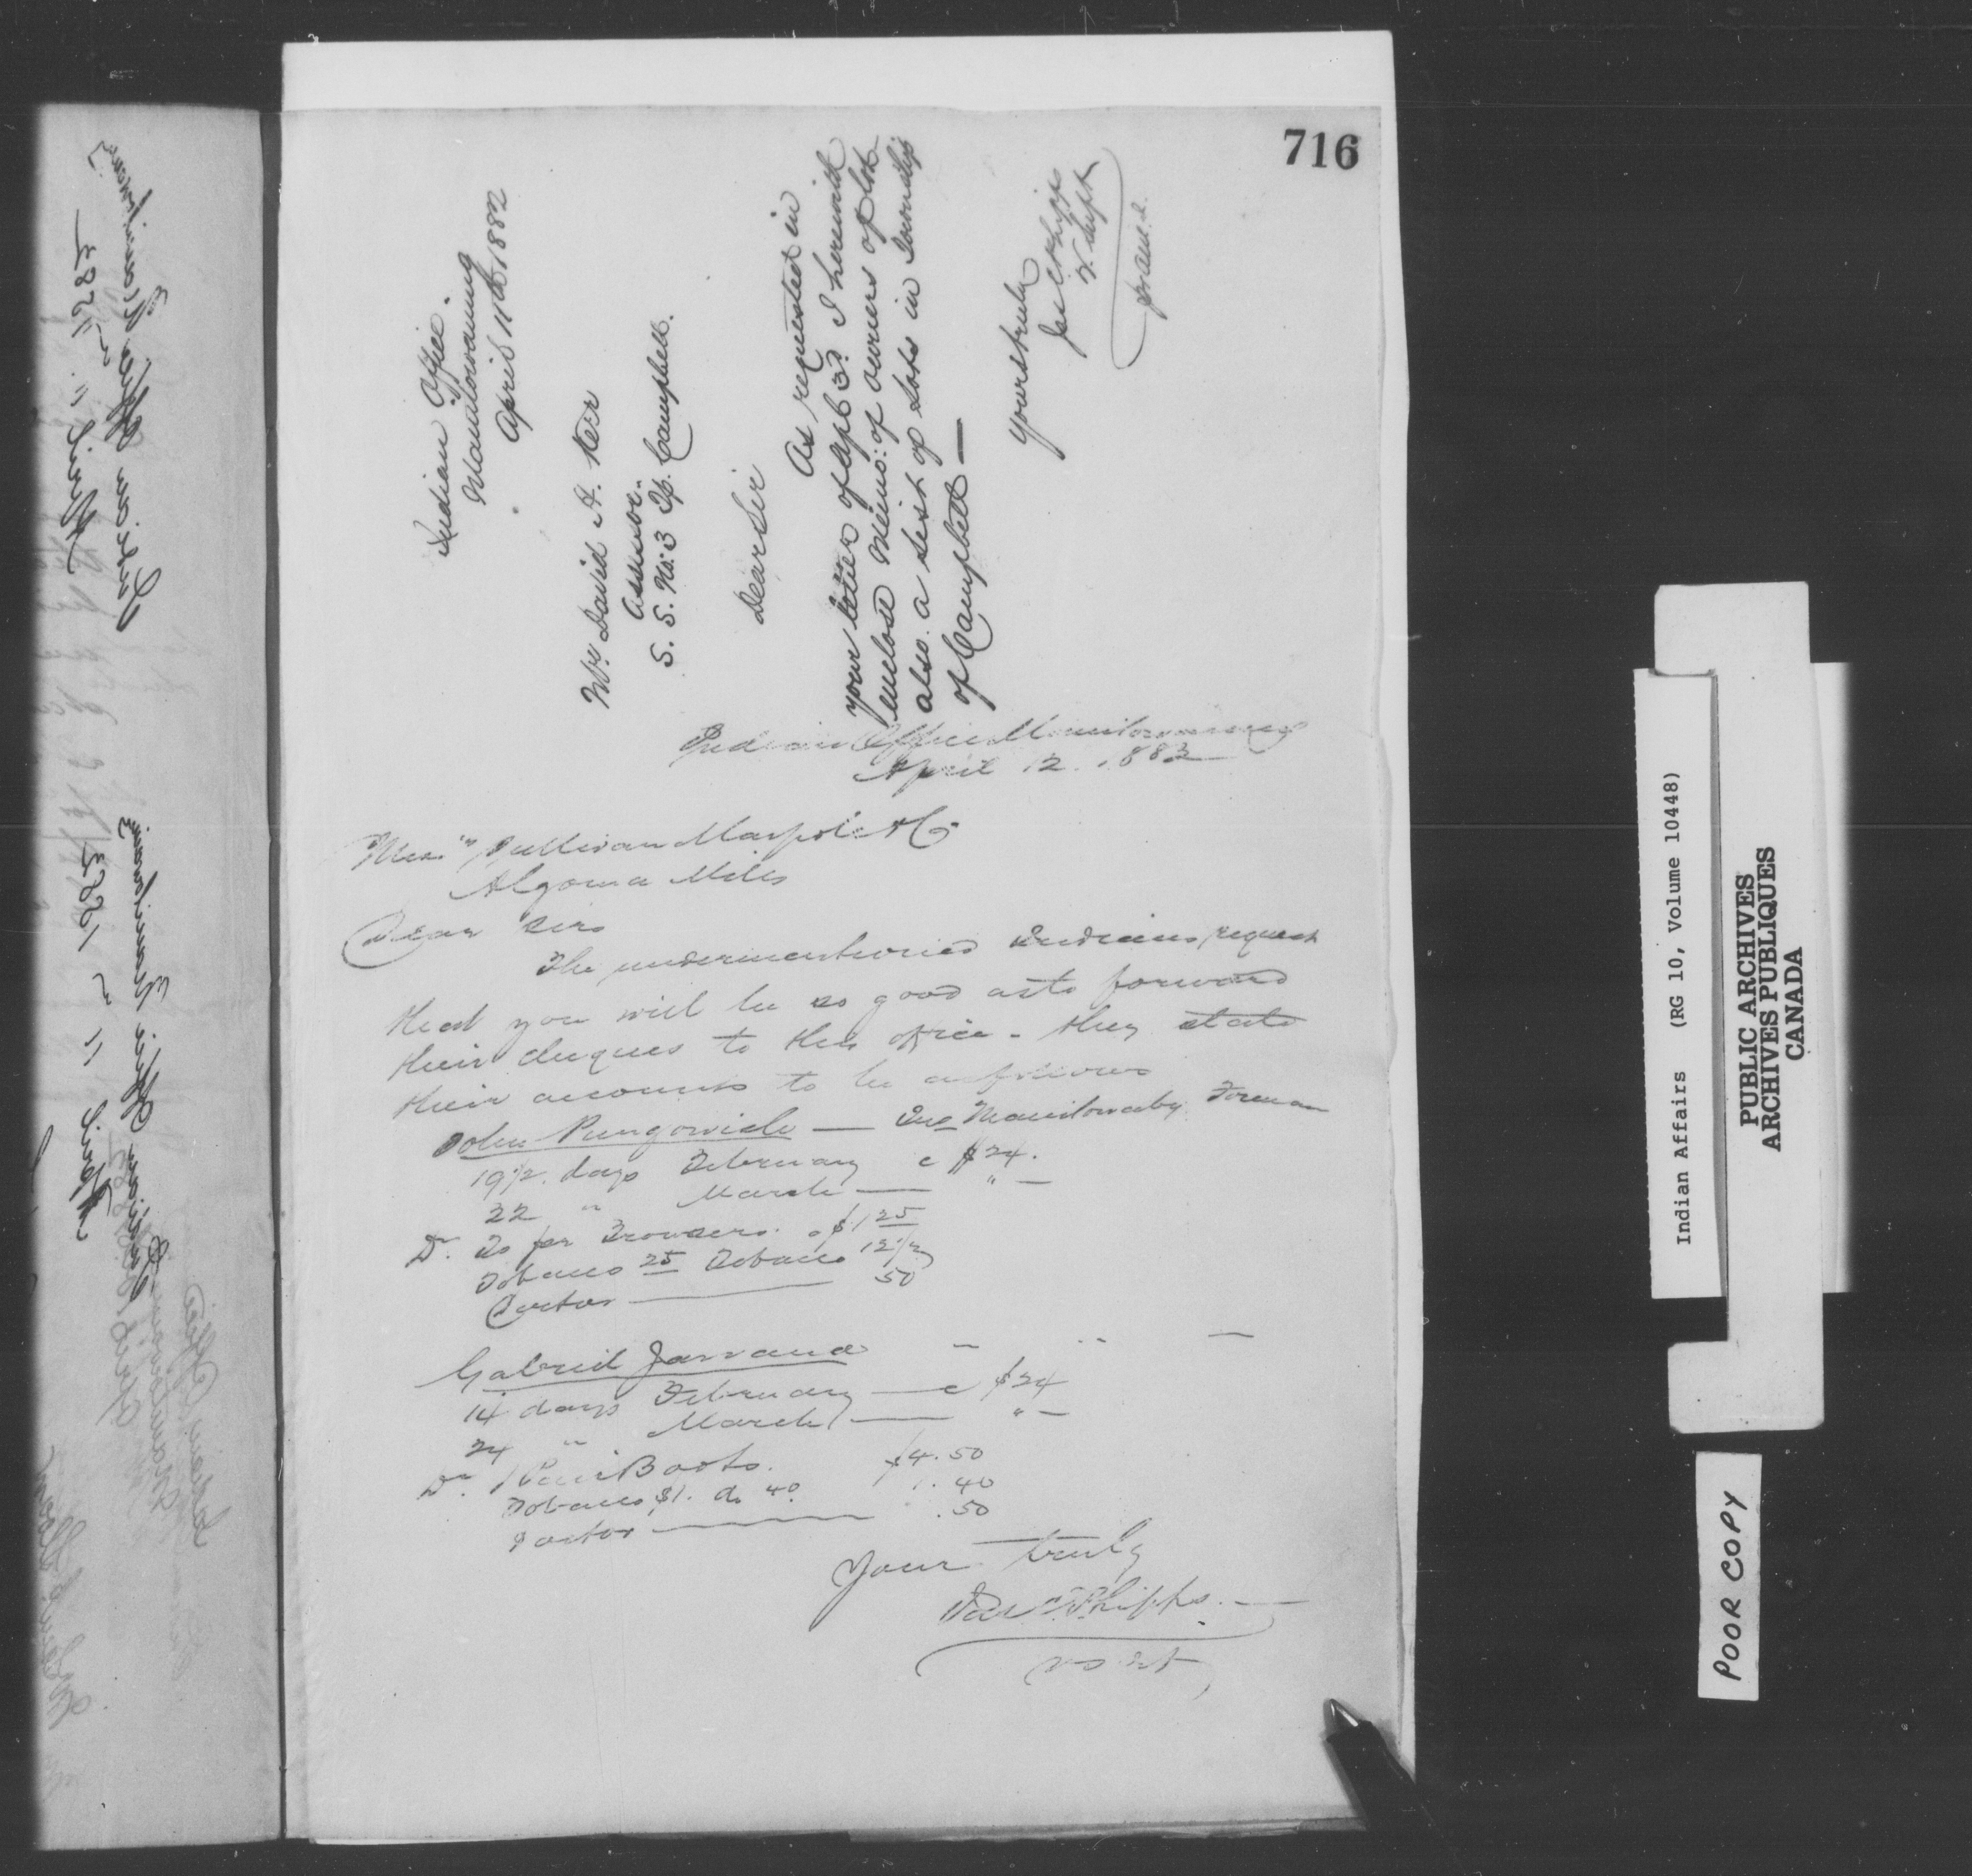 716
Indian Office.
Manitowaning
April 11th 1882
Mr. David A. Ker
Assessor.
S. S. No. 3 Tp. Campbell.
Dear Sir
As requested in
your letter of Apl 3d. I herewith
enclose Memo: of owners of lots
also a list of Lots in Township
of Campbell —
Yours truly
Jas C Phipps
V. Supt
Indian Office Manitowaning
April 12. 1882
Algoma Mills
Dear Sirs
The undermentioned Indians request
that you will be so good as to forward
their cheques to this office - they state
their accounts to be as follows
John Pungowish — Foreman
19 1/2. days February @ $24.
22 " March — " —
Dr. To pr Trowsers. $1 25
Tobacco 25 Tobacco 12 1/2
Doctor — 50
Gabriel " " —
14 days February — @ $24
24 " March — " —
Dr. 1 Pair Boots. $4.50
Tobacco $1. do 40 1.40
Doctor — .50
Yours truly
Jas C Phipps.
V S
April 11 " 1882
Indian Office Manitowaning
April 11 " 1882
Indian Office Manitowaning
Indian Affairs (RG 10, Volume 10448)
PUBLIC ARCHIVES
ARCHIVES PUBLIQUES
CANADA
POOR COPY